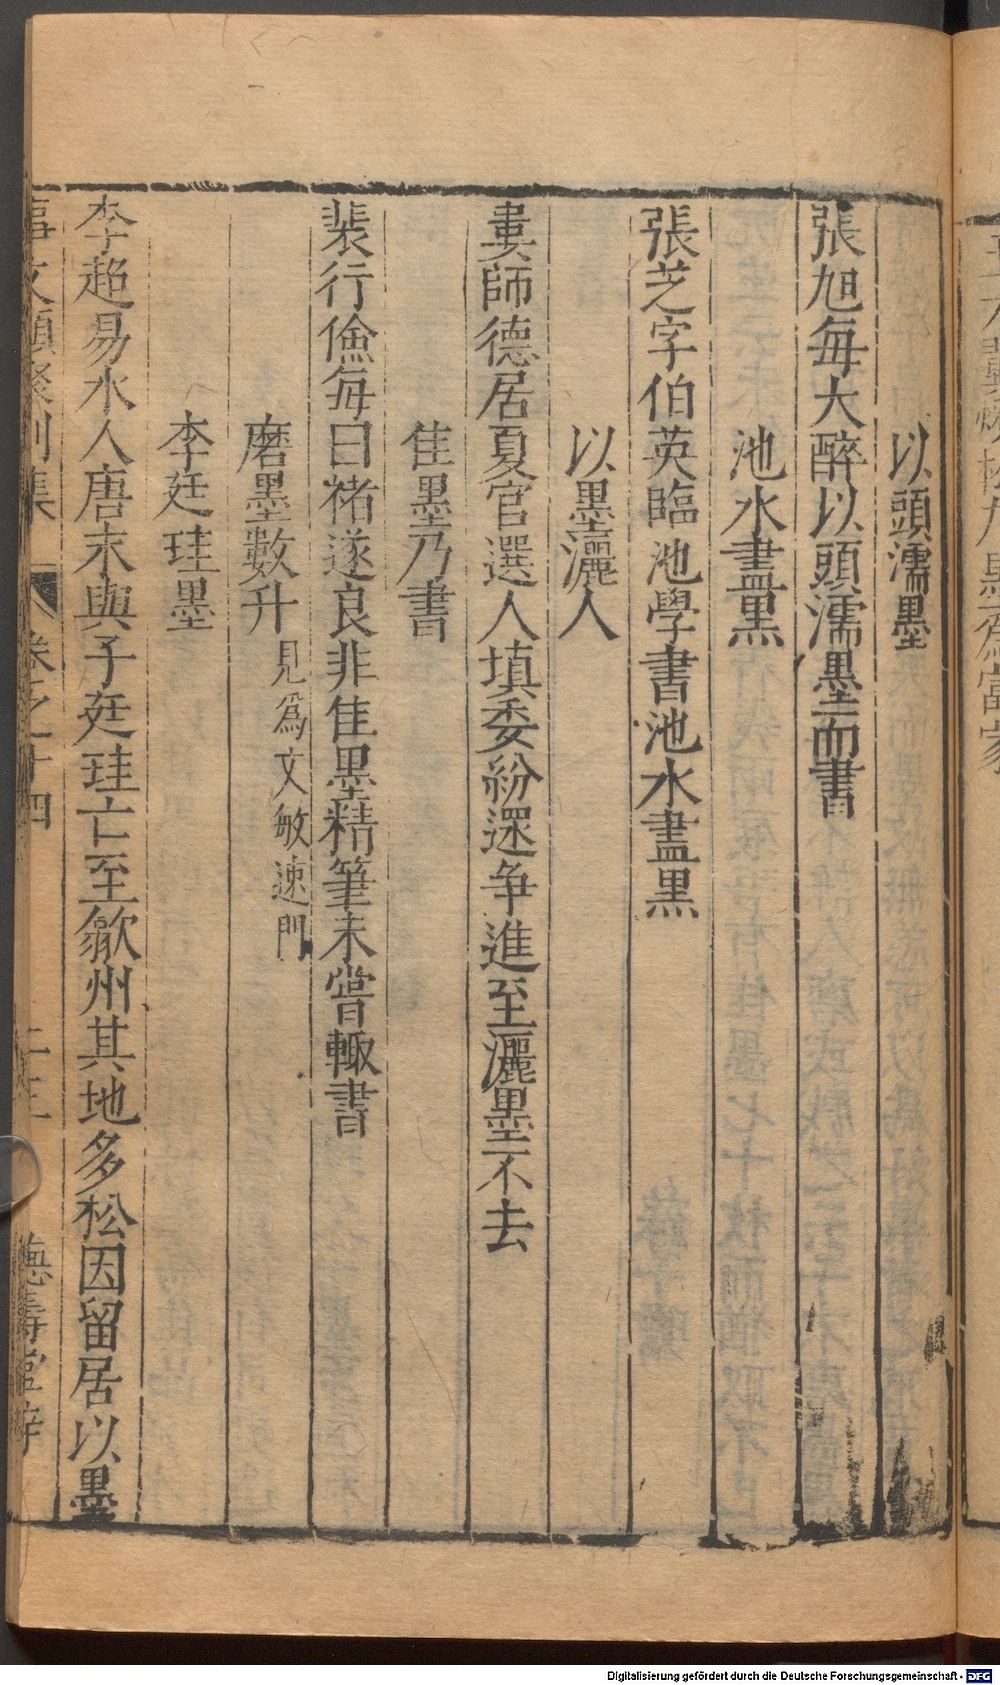 以頭濡墨
張旭每大醉以頭濡墨而書
池水盡黑
張芝字伯英臨池學書池水盡黑
以墨灑人
婁師德居夏官選人填委紛還爭進至灑墨不去
佳墨乃書
裴行儉每曰褚遂良非佳墨精筆未嘗輙書
磨墨數升 見爲文敏速門
李廷珪墨
李超易水人唐末與子廷珪亡至歙州其地多松因留居以墨
事文類聚別集 卷之十四 德壽堂梓
Digitalisierung gefördert durch die Deutsche Forschungsgemeinschaft - DFG